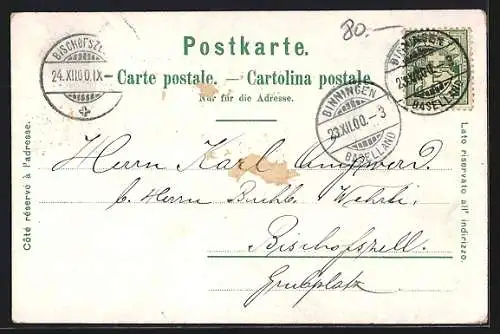 80.-
Postkarte.
BISCHOFSZELL
24.XII.00.IX
- Carte postale. — Cartolina postale
Nur für die Adresse.
BINNINGEN
23.XII.00.-3
BASELLAND
BINNINGEN
23.XII.00.
BASELLAND
Côté réservé à l'adresse.
Lato riservato all' indirizzo.
Herrn Karl
b. Herrn Buchb. Wehrli
Bischofszell
Grubplatz